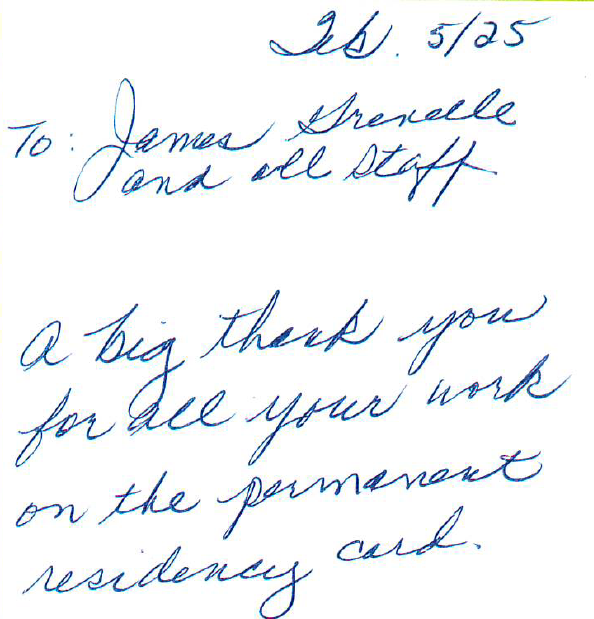 Feb. 5/25
To: James Grenelle
and all Staff
A big thank you
for all your work
on the permanent
residency card.